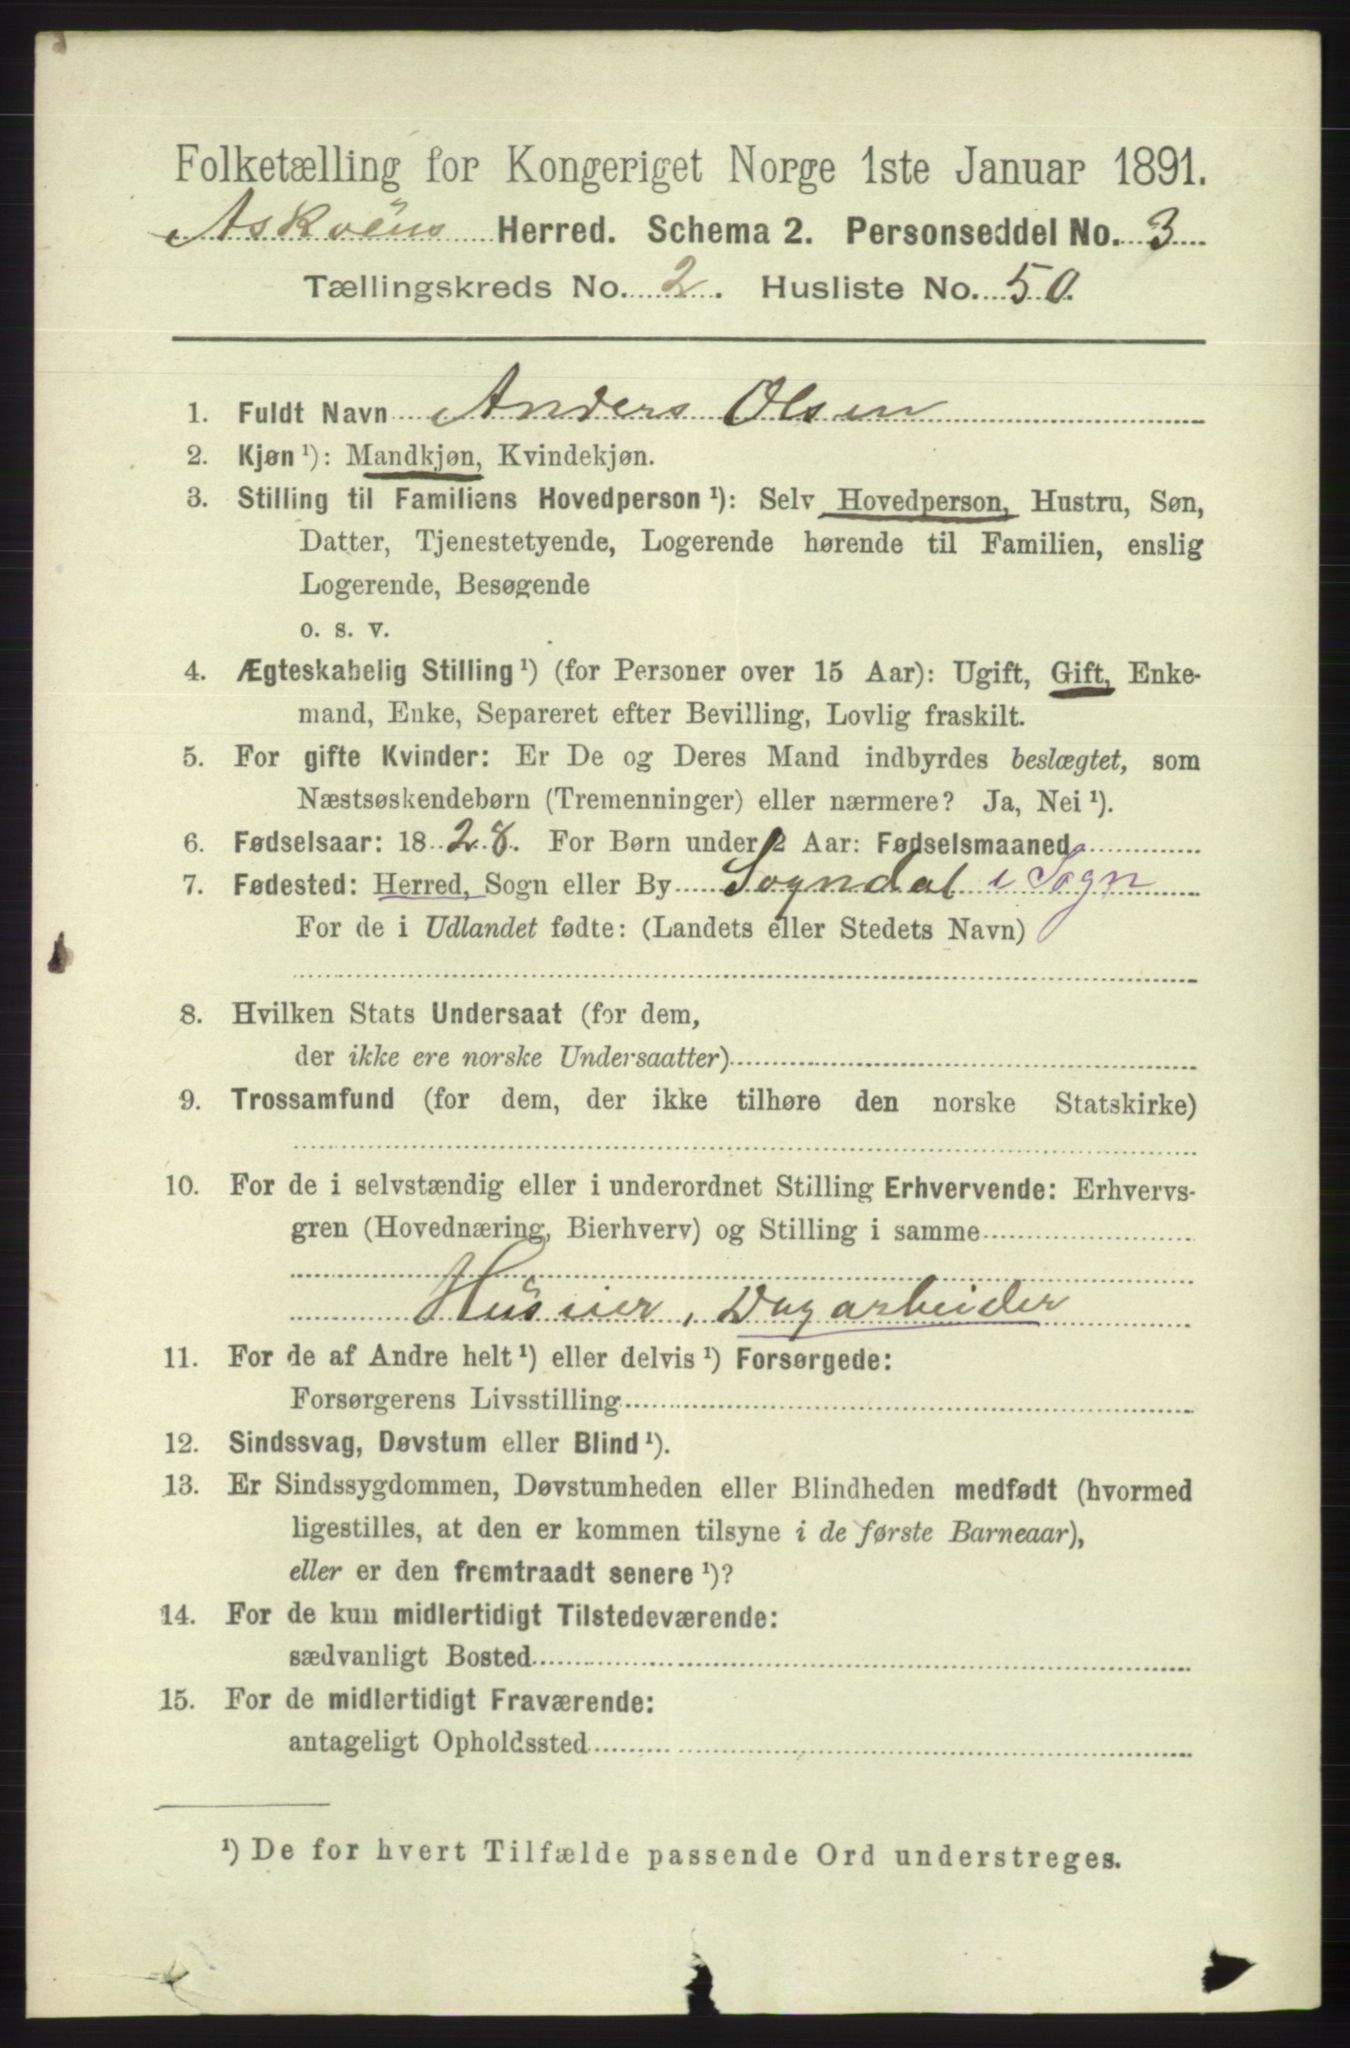 Folketælling for Kongeriget Norge 1ste Januar 1891.
Askøens Herred. Schema 2. Personseddel No. 3
Tællingskreds No. 2. Husliste No. 50.
1. Fuldt Navn Anders Olsen
2. Kjøn ¹): Mandkjøn, Kvindekjøn.
3. Stilling til Familiens Hovedperson ¹): Selv Hovedperson, Hustru, Søn,
Datter, Tjenestetyende, Logerende hørende til Familien, enslig
Logerende, Besøgende
o. s. v.
4. Ægteskabelig Stilling ¹) (for Personer over 15 Aar): Ugift, Gift, Enke-
mand, Enke, Separeret efter Bevilling, Lovlig fraskilt.
5. For gifte Kvinder: Er De og Deres Mand indbyrdes beslægtet, som
Næstsøskendebørn (Tremenninger) eller nærmere? Ja, Nei ¹).
6. Fødselsaar: 1828. For Børn under 2 Aar: Fødselsmaaned
7. Fødested: Herred, Sogn eller By Sogndal i Sogn
For de i Udlandet fødte: (Landets eller Stedets Navn)
8. Hvilken Stats Undersaat (for dem,
der ikke ere norske Undersaatter)
9. Trossamfund (for dem, der ikke tilhøre den norske Statskirke)
10. For de i selvstændig eller i underordnet Stilling Erhvervende: Erhvervs-
gren (Hovednæring, Bierhverv) og Stilling i samme
Husier, Dagarbeider
11. For de af Andre helt ¹) eller delvis ¹) Forsørgede:
Forsørgerens Livsstilling
12. Sindssvag, Døvstum eller Blind ¹).
13. Er Sindssygdommen, Døvstumheden eller Blindheden medfødt (hvormed
ligestilles, at den er kommen tilsyne i de første Barneaar),
eller er den fremtraadt senere ¹)?
14. For de kun midlertidigt Tilstedeværende:
sædvanligt Bosted
15. For de midlertidigt Fraværende:
antageligt Opholdssted
¹) De for hvert Tilfælde passende Ord understreges.